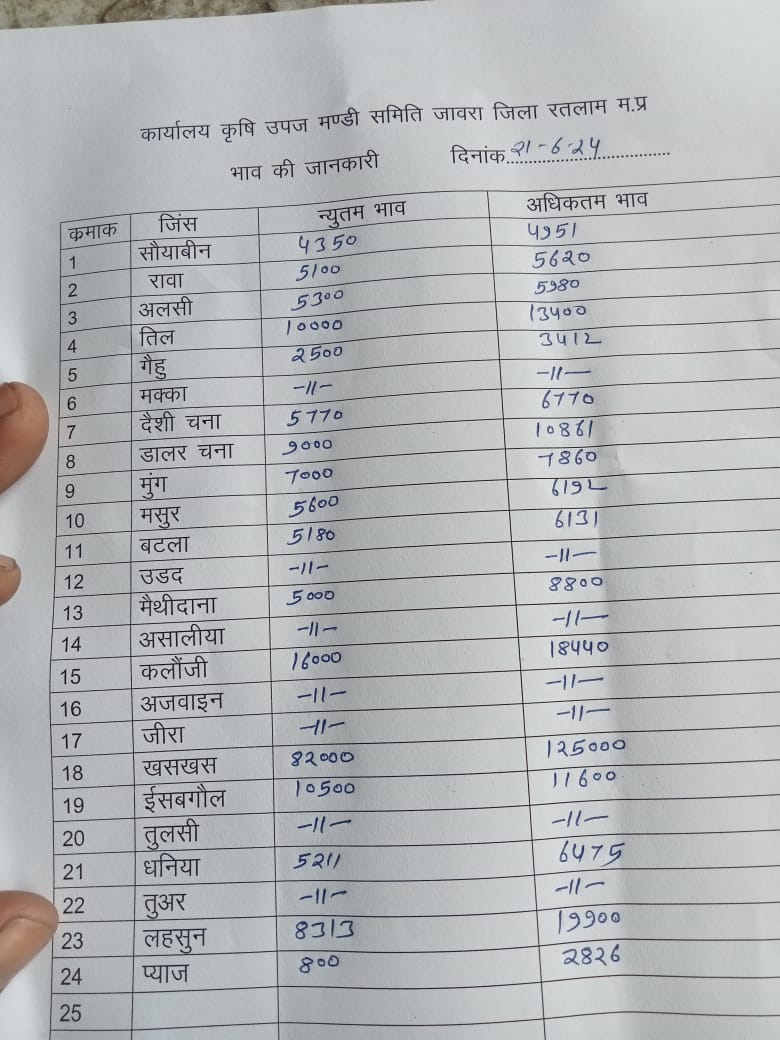 कार्यालय कृषि उपज मण्डी समिति जावरा जिला रतलाम म.प्र
भाव की जानकारी दिनांक 21-6-24
कमाक जिंस न्युतम भाव अधिकतम भाव
1 सौयाबीन 4350 4951
2 रावा 5100 5620
3 अलसी 5300 5980
4 तिल 10000 13400
5 गैहु 2500 3412
6 मक्का -11- -11-
7 दैशी चना 5770 6770
8 डालर चना 9000 10861
9 मुंग 7000 7860
10 मसुर 5600 6192
11 बटला 5180 6131
12 उडद -11- -11-
13 मैथीदाना 5000 8800
14 असालीया -11- -11-
15 कलौंजी 16000 18440
16 अजवाइन -11- -11-
17 जीरा -11- -11-
18 खसखस 82000 125000
19 ईसबगौल 10500 11600
20 तुलसी -11- -11-
21 धनिया 5211 6475
22 तुअर -11- -11-
23 लहसुन 8313 19900
24 प्याज 800 2826
25